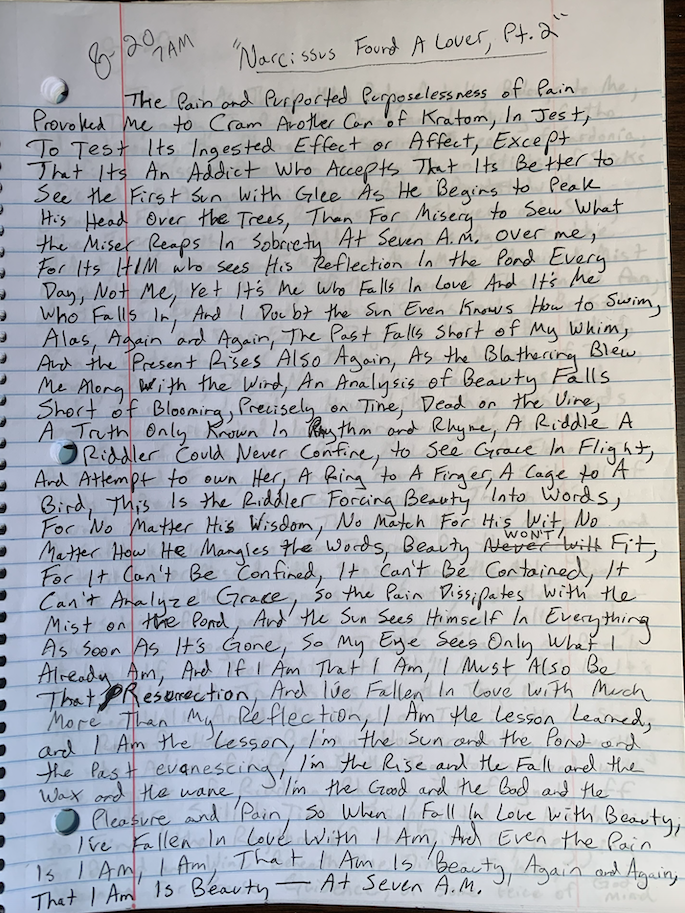 8:20 7AM "Narcissus Found A Lover, Pt. 2"
The Pain and Purported Purposelessness of Pain
Provoked Me to Cram Another Can of Kratom, In Jest,
To Test Its Ingested Effect or Affect, Except
That Its An Addict Who Accepts That Its Better to
See the First Sun With Glee As He Begins to Peak
His Head Over the Trees, Than For Misery to Sew What
the Miser Reaps In Sobriety At Seven A.M. over me,
For Its HIM who sees His Reflection In the Pond Every
Day, Not Me, Yet It's Me Who Falls In Love And It's Me
Who Falls In, And I Doubt the Sun Even Knows How to Swim,
Alas, Again and Again, The Past Falls Short of My Whim,
And the Present Rises Also Again, As the Blathering Blew
Me Along With the Wind, An Analysis of Beauty Falls
Short of Blooming, Precisely on Time, Dead on the Vine,
A Truth Only Known In Rhythm and Rhyme, A Riddle A
Riddler Could Never Confine, to See Grace In Flight,
And Attempt to own Her, A Ring to A Finger, A Cage to A
Bird, This Is the Riddler Forcing Beauty Into Words,
For No Matter His Wisdom, No Match For His Wit, No
Matter How He Mangles the Words, Beauty Never Will WON'T Fit,
For It Can't Be Confined, It Can't Be Contained, It
Can't Analyze Grace, So the Pain Dissipates With the
Mist on the Pond, And the Sun Sees Himself In Everything
As Soon As It's Gone, So My Eye Sees Only What I
Already Am, And If I Am That I Am, I Must Also Be
That Resurrection, And I've Fallen In Love With Much
More Than My Reflection, I Am the Lesson Learned,
and I Am the Lesson, I'm the Sun and the Pond and
the Past evanescing, I'm the Rise and the Fall and the
Wax and the wane, I'm the Good and the Bad and the
Pleasure and Pain, So When I Fall In Love With Beauty,
I've Fallen In Love With I Am, And Even the Pain
Is I Am, I Am, That I Am Is Beauty, Again and Again,
That I Am Is Beauty — At Seven A.M.